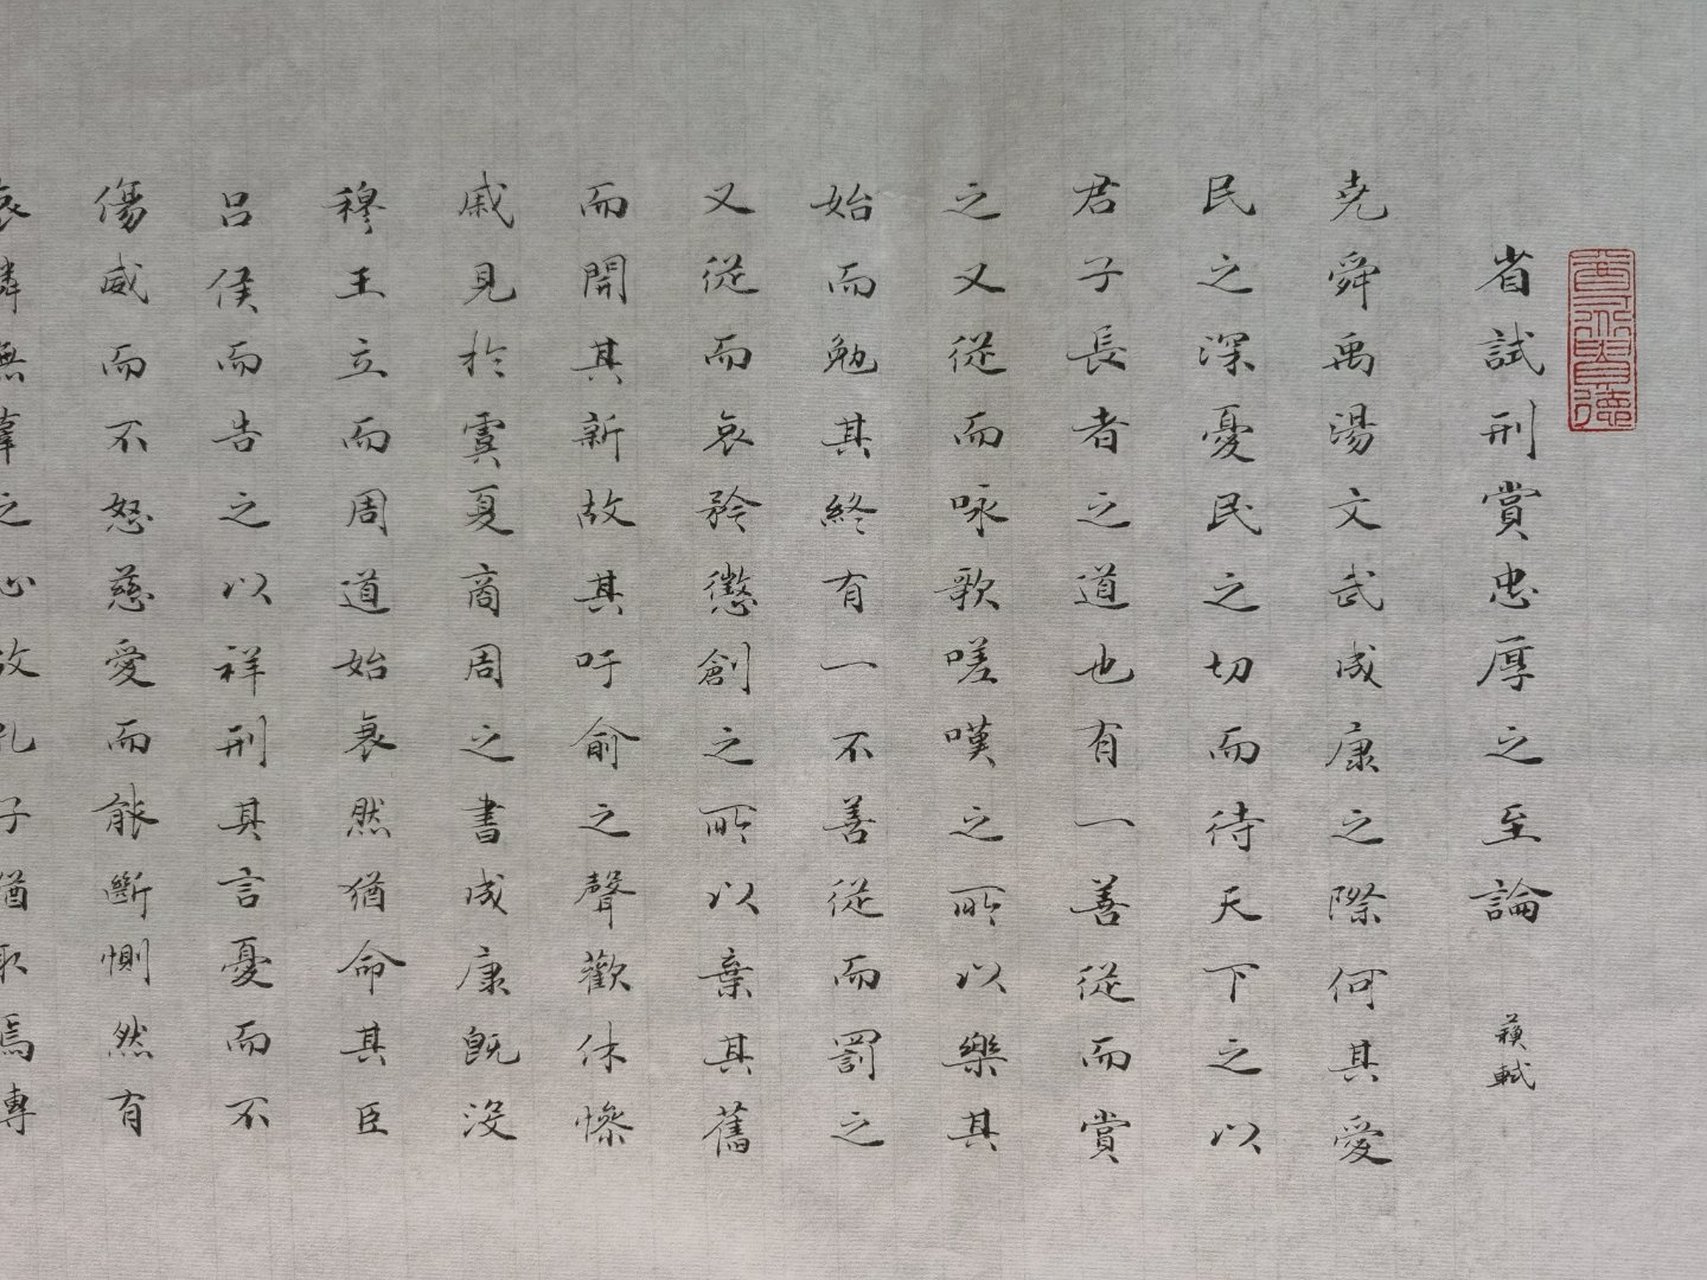 省試刑賞忠厚之至論 蘇軾
堯舜禹湯文武成康之際何其愛
民之深憂民之切而待天下之以
君子長者之道也有一善從而賞
之又從而咏歌嗟嘆之所以樂其
始而勉其終有一不善從而罰之
又從而哀矜懲創之所以棄其舊
而開其新故其吁俞之聲歡休慘
戚見於虞夏商周之書成康既没
穆王立而周道始衰然猶命其臣
呂侯而告之以祥刑其言憂而不
傷威而不怒慈愛而能斷惻然有
哀憐無辜之心故孔子猶取焉專